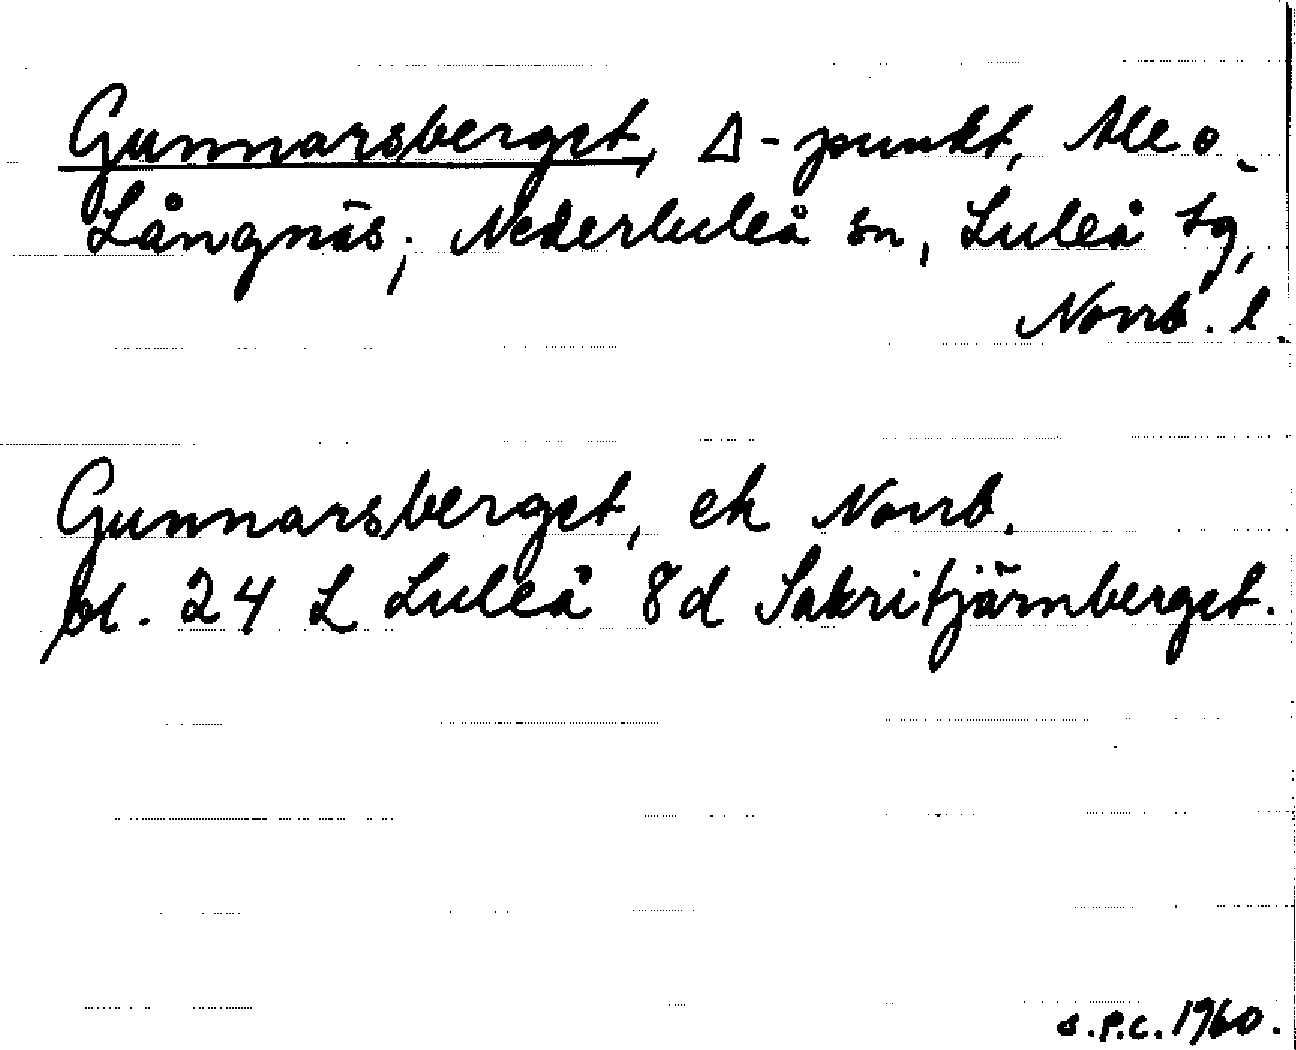 Gunnarsberget, Δ-punkt, Ale o.
Långnäs, Nederluleå sn, Luleå tg,
Norrb. l.
Gunnarsberget, ek Norrb.
bl. 24 L Luleå 8d Sakritjärnberget.
S.P.C. 1960.